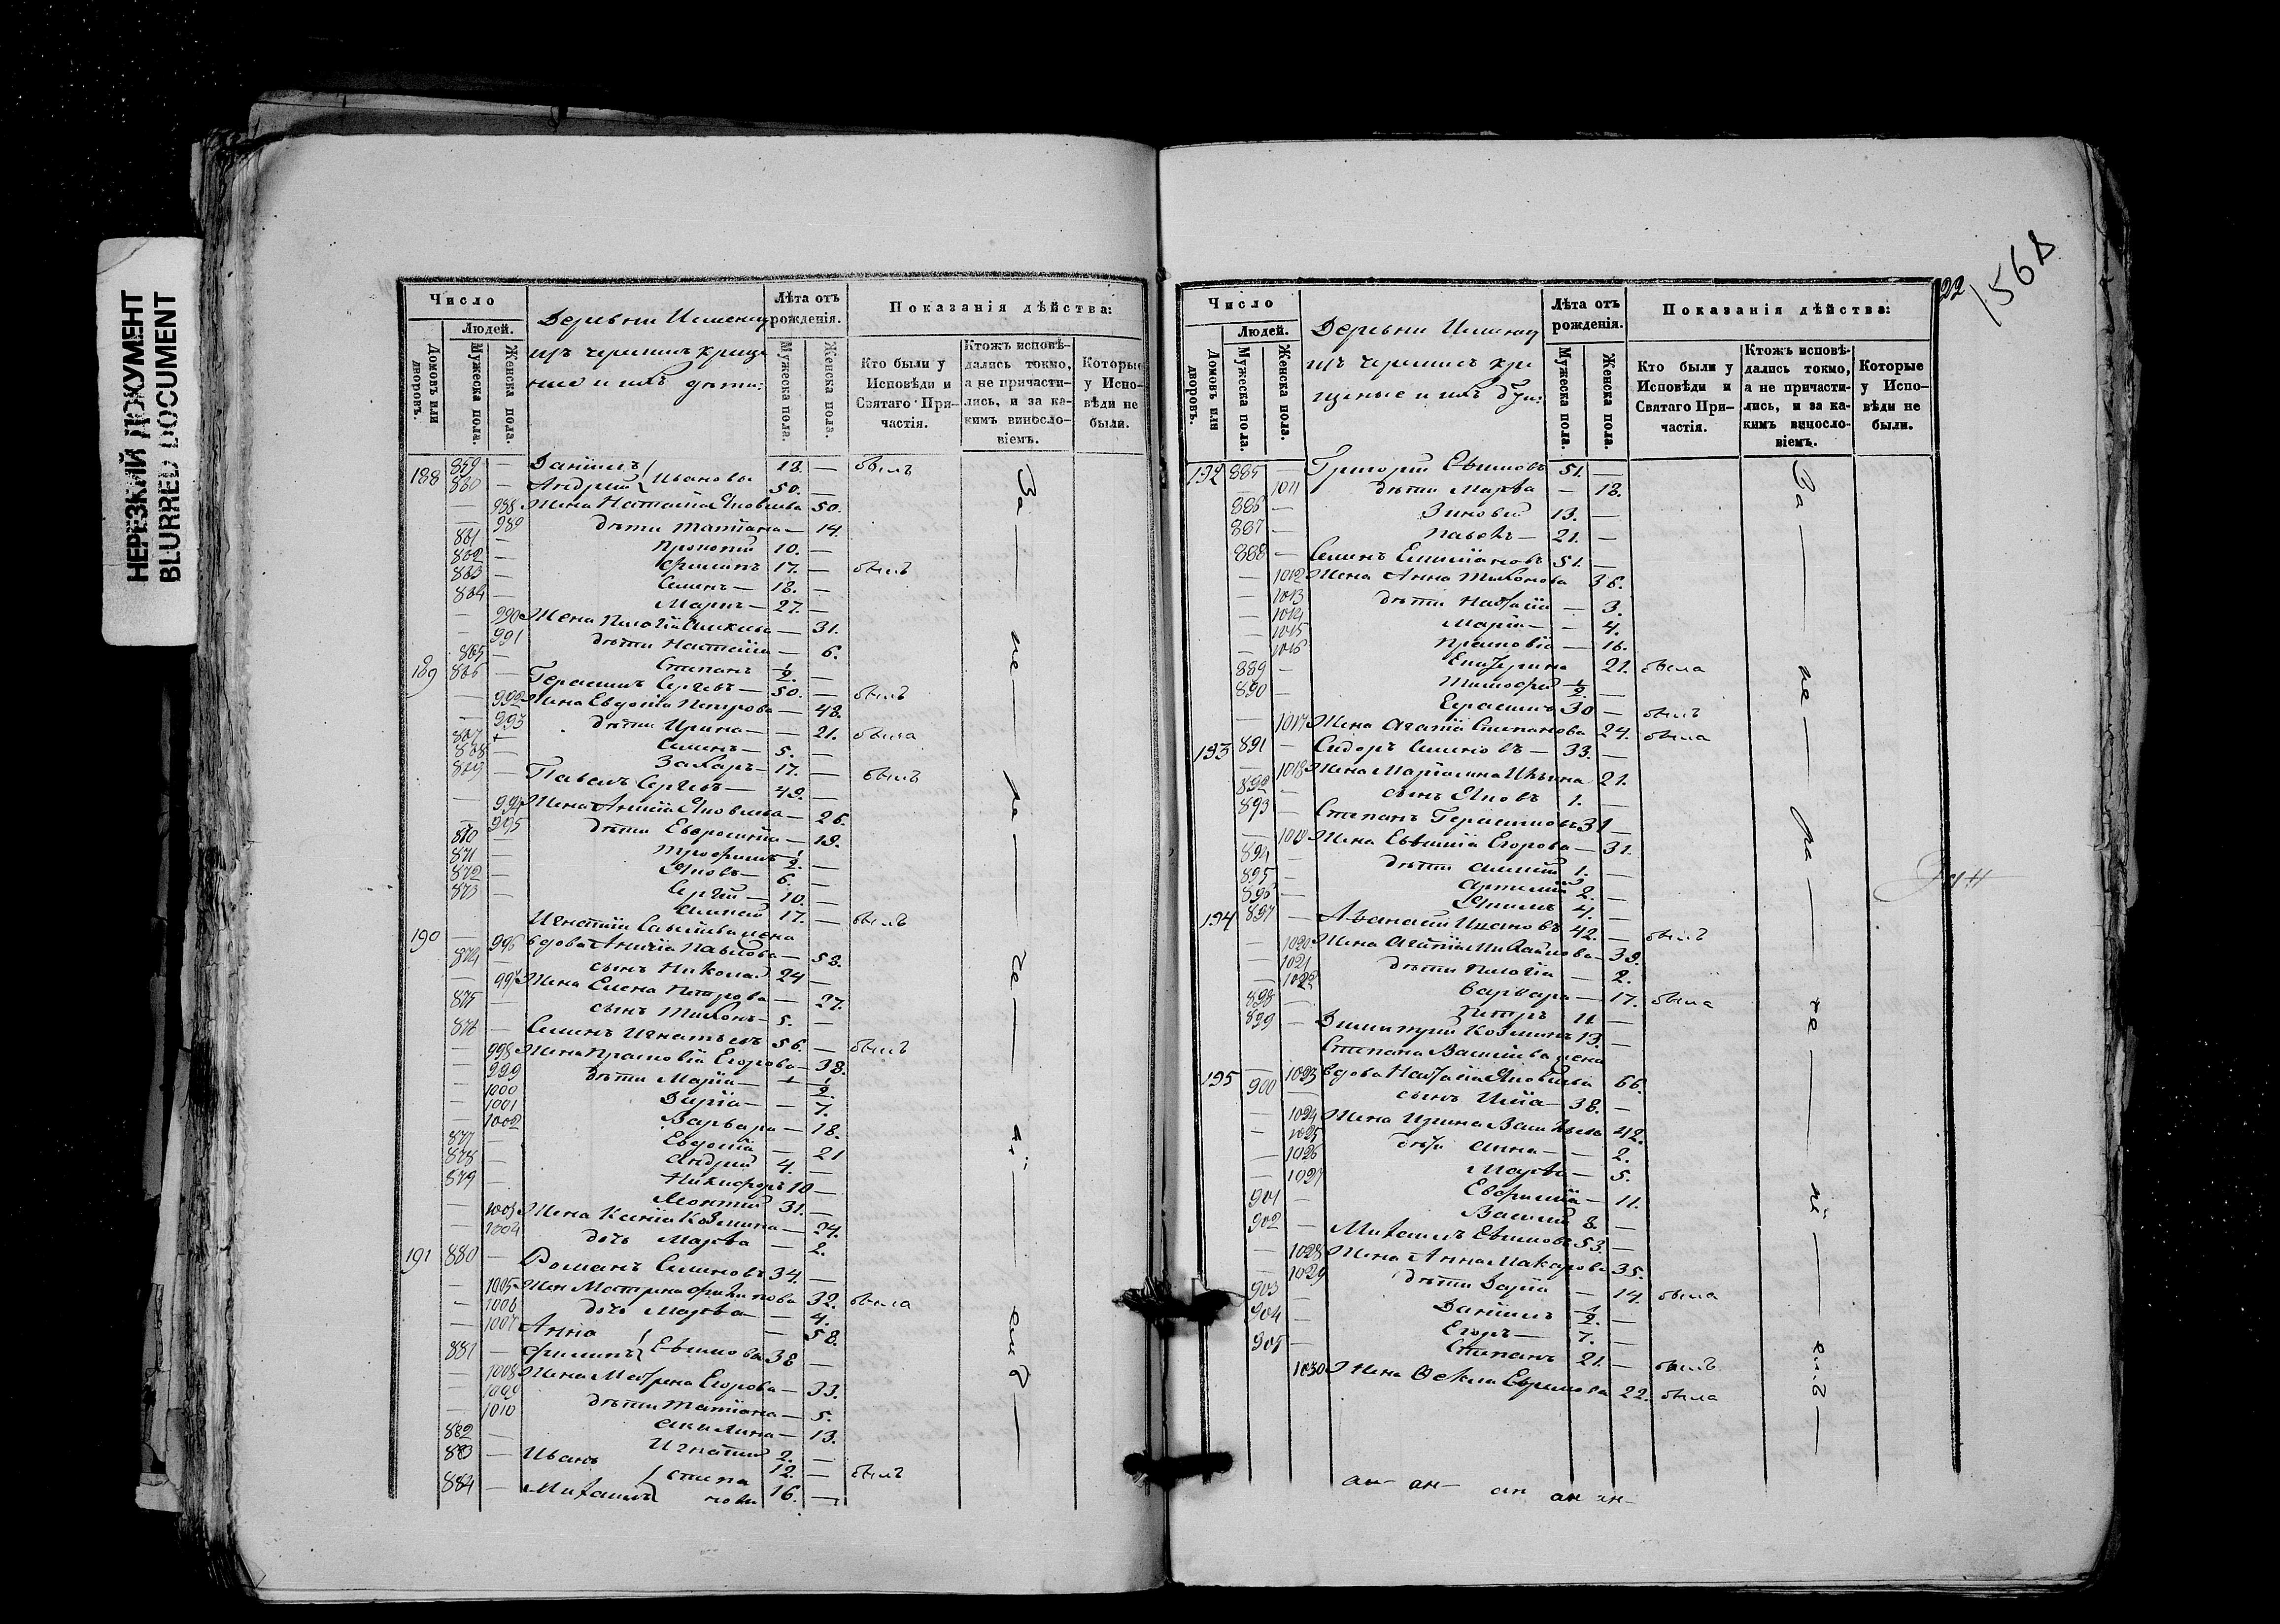 НЕРЕЗКИЙ ДОКУМЕНТ
BLURRED DOCUMENT
Число
Людей.
Домовъ или дворовъ.
Мужеска пола.
Женска пола.
Деревни
Лѣта отъ рожденія.
Мужеска пола.
Женска пола.
Показанія дѣйства:
Кто были у Исповѣди и Святаго Причастія.
Ктожъ исповѣдались токмо, а не причастились, и за какимъ винословіемъ.
Которые у Исповѣди не были.
859 — Даніилъ 18. — былъ
188 860 — Андрей Ивановы 50. —
— 988 Жена Наталія Яковлева 50.
— 989 дѣти Татіана — 14.
861 — Прокопій 10. —
862 — Филипъ 17. — былъ
863 — Семенъ 18. —
864 — Маркъ — 27. —
— 990 Жена Пелагія — 31.
— 991 дѣти Наталія — 6.
865 — Степанъ ½. —
189 866 — Герасимъ Сергѣевъ — 50. — былъ
— 992 Жена Евдокія Петрова — 48.
— 993 дѣти Ирина — — 21. была
867 Семенъ — 5. —
868 — Захаръ — 17. — былъ
869 — Павелъ Сергѣевъ — 49. —
— 994 Жена Яковлева — 26.
— 995 дѣти Евфросинія — 19.
870 — Трофимъ ½. —
871 — Яковъ — 6. —
872 — Сергѣй — 10. —
873 — Алексѣй 17. — былъ
Игнатія Савельева жена
190 — 996 вдова Павлова — 58.
874 сынъ Николай 24 —
— 997 Жена Елена Петрова — 27.
875 — сынъ Тихонъ — 5. —
876 — Семенъ Игнатьевъ 56. — былъ
— 998 Жена Прасковія Егорова — 38.
— 999 дѣти Марія — ½.
— 1000 Дарія — — 7.
— 1001 Варвара — 18.
— 1002 Евдокія — 21
877 — Андрей 4. —
878 — Никифоръ 10 —
879 — Леонтій 31. —
— 1003 Жена Ксенія Козмина — 24.
— 1004 дочь Марѳа — 2.
191 880 — Романъ Семеновъ 34. —
— 1005 Жена Матрена Филипова 32. была
— 1006 дочь Марѳа — 4.
— 1007 Анна — 58.
881 — Филипъ Евѣимовы 38 —
— 1008 Жена Матрена Егорова — 33.
— 1009 дѣти Татіана — 5.
— 1010 Акилина — 13.
882 — Игнатій 2. —
883 — Иванъ 12. — былъ
884 — Михаилъ Степановы 16. —
За — не — ра — че — ні — емъ —
22
1568
Число
Людей.
Домовъ или дворовъ.
Мужеска пола.
Женска пола.
Деревни
Лѣта отъ рожденія.
Мужеска пола.
Женска пола.
Показанія дѣйства:
Кто были у Исповѣди и Святаго Причастія.
Ктожъ исповѣдались токмо, а не причастились, и за какимъ винословіемъ.
Которые у Исповѣди не были.
192 885 — Григорій Евѣимовъ 51. —
— 1011 дѣти Марѳа — 18.
886 — Зиновій 13. —
887 — Павелъ — 21. —
888 — Семенъ Емиліановъ 51. —
— 1012 Жена Анна Тихонова 36.
— 1013 дѣти Наталія — 3.
— 1014 Марія — — 4.
— 1015 Прасковія — 16.
— 1016 Екатерина 21. была
889 — Тимофей ½. —
890 — Герасимъ 30 — былъ
— 1017 Жена Агафія Степанова 24. была
193 891 — Сидоръ Семеновъ — 33. —
— 1018 Жена Ильина 21.
892 — сынъ Яковъ 1. —
893 — Степанъ Герасимовъ 31 —
— 1019 Жена Евѣимія Егорова — 31.
894 — дѣти Алексѣй 1. —
895 — Артемій 2. —
896 — 4. —
194 897 — Аѳанасій Ивановъ 42. — былъ
— 1020 Жена Михайлова — 39.
— 1021 дѣти Пелагія — 2.
— 1022 Варвара — 17. была
898 — Петръ 11. —
899 — Димитрій Козминъ 13. —
Степана Васильева жена
195 — 1023 вдова Наталія Яковлева 66.
900 — сынъ Илія — 38. —
— 1024 Жена Ирина Васильева 42.
— 1025 дѣти Анна — — 2.
— 1026 Марѳа — 5.
— 1027 Евфимія — 11.
901 — Василій 8. —
902 — Михаилъ Евѣимовъ 53. —
— 1028 Жена Анна Макарова 35.
— 1029 дѣти Дарія — 14. была
903 — Даніилъ ½. —
904 — Егоръ — 7. —
905 — Степанъ 21. — былъ
1030 Жена Ѳекла Ефремова 22. была
За — не — ра — че — ні — емъ —